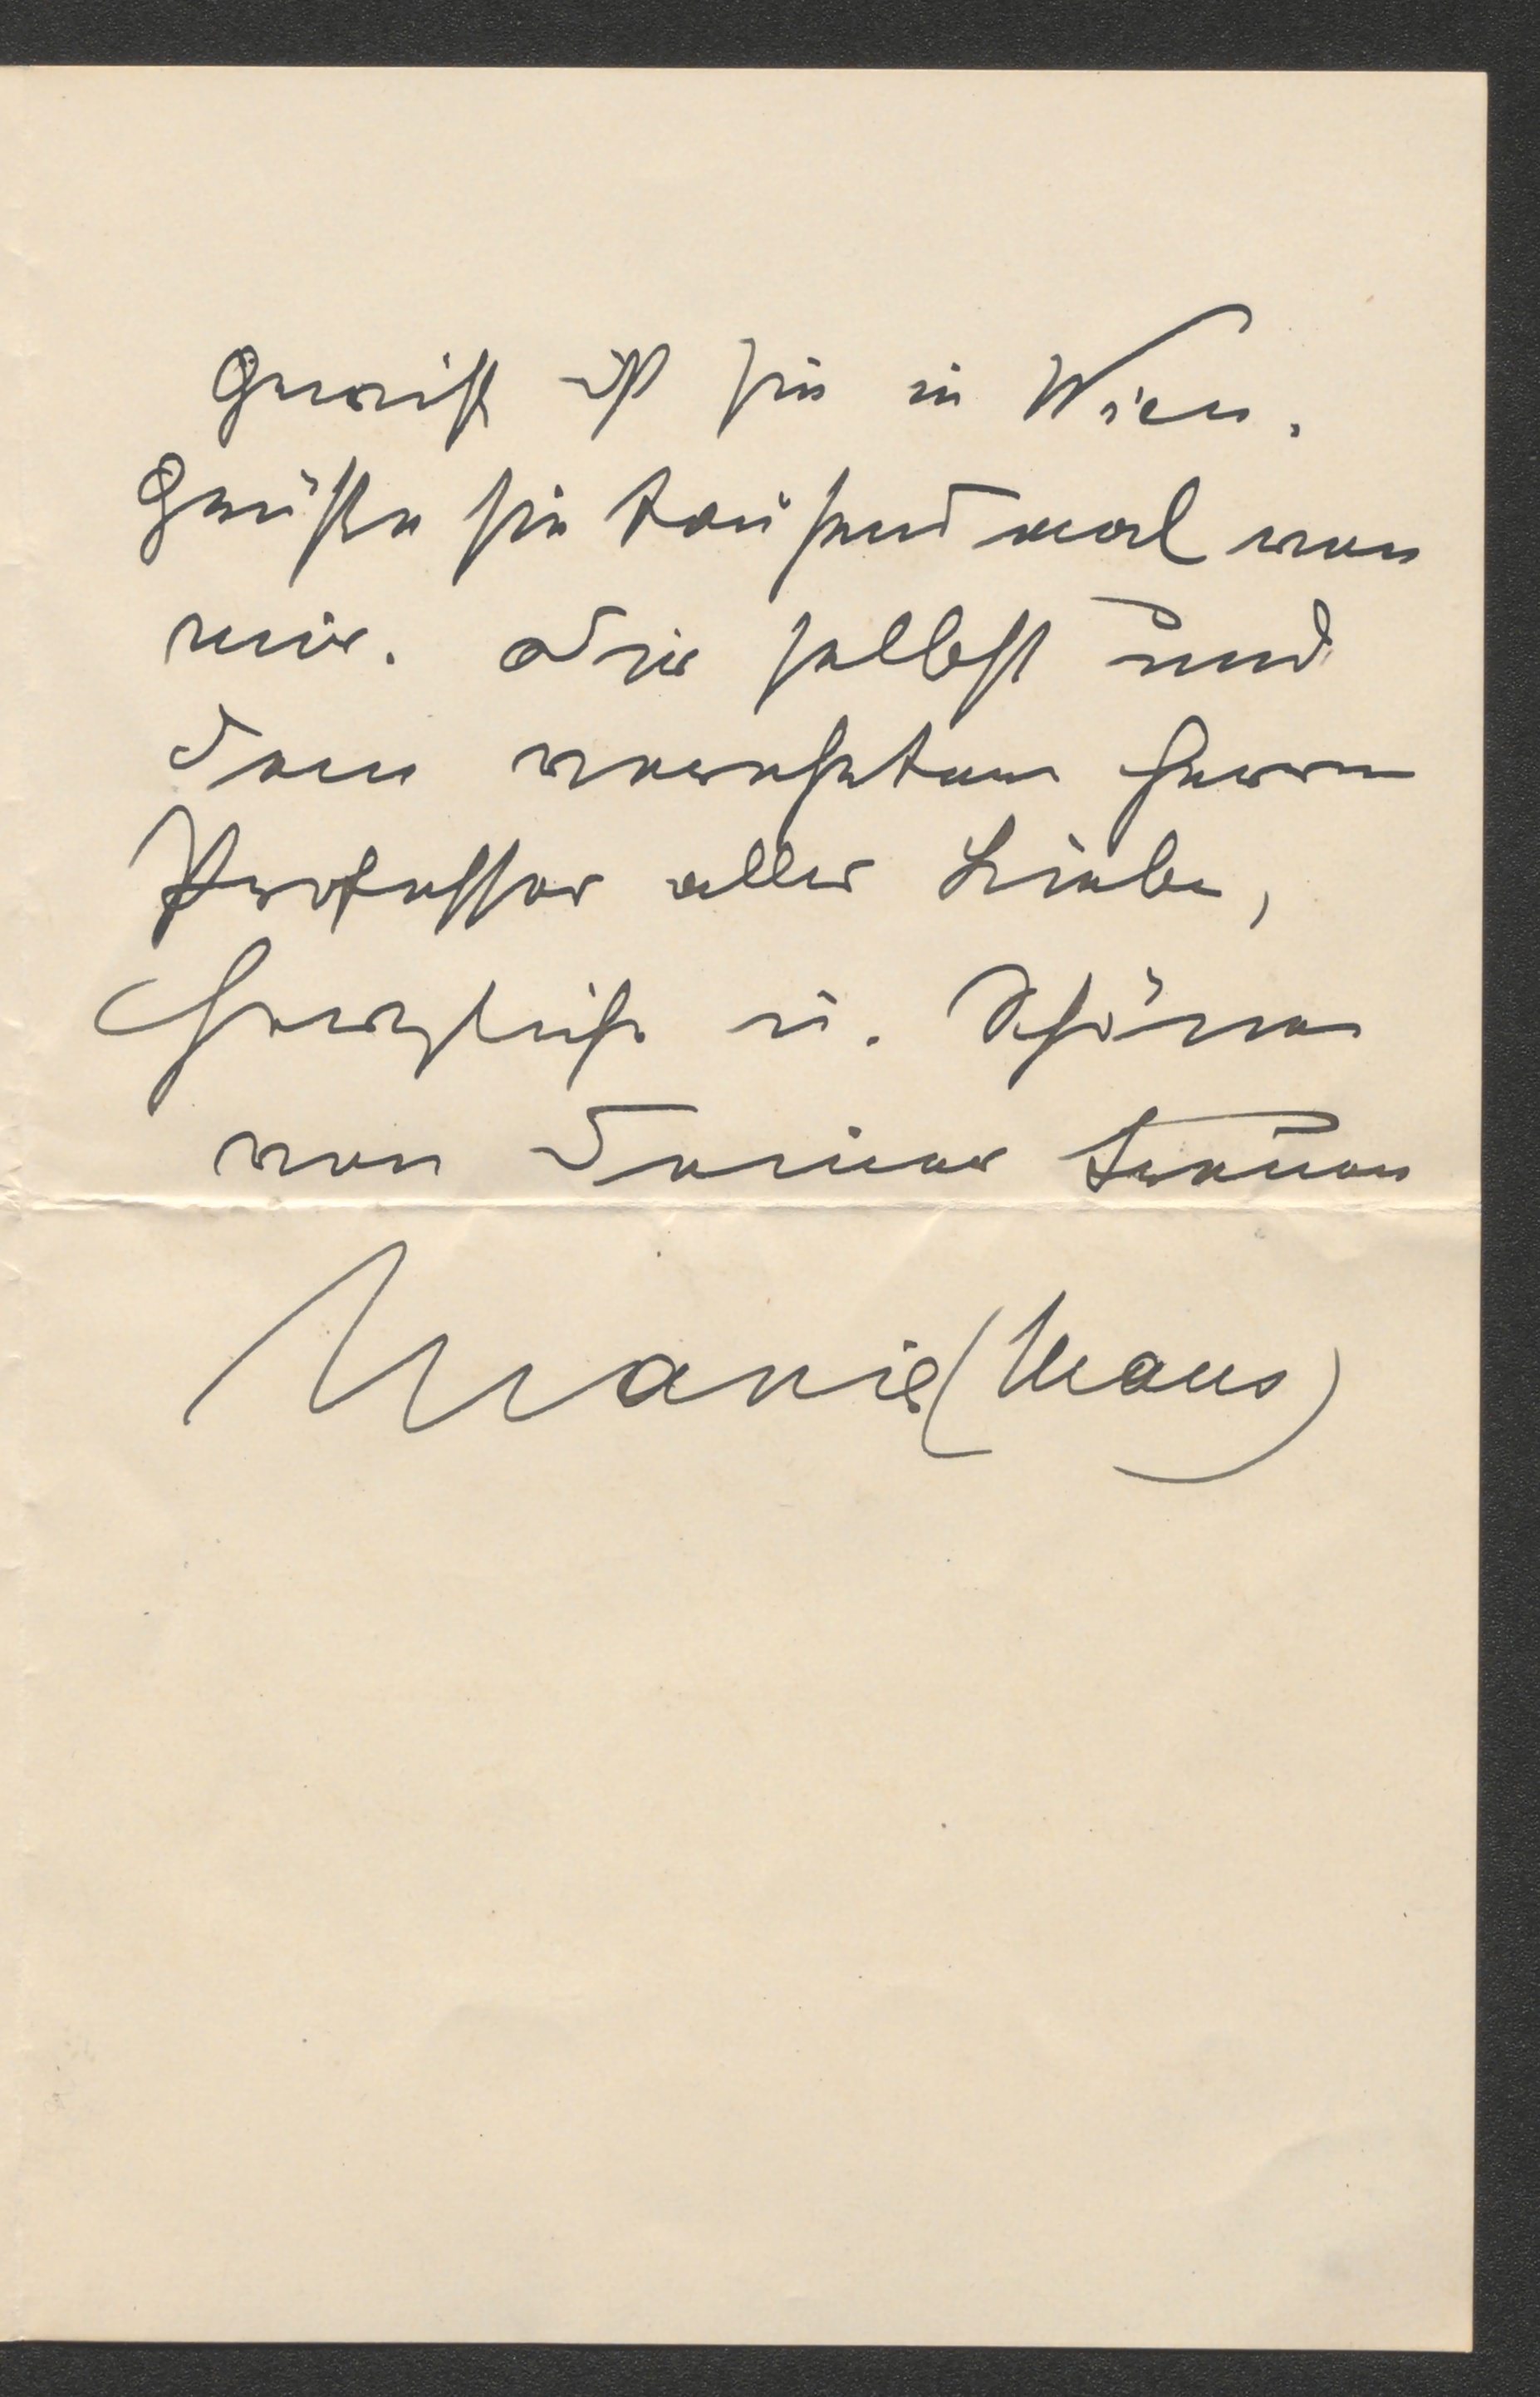 Gewiß ist sie in Wien.
Grüße sie tausendmal von
mir. Dir selbst und
dem verehrten Herrn
Professor alles Liebe,
Herzliche u. Schöne
von Deiner treuen
Marie (Maus)